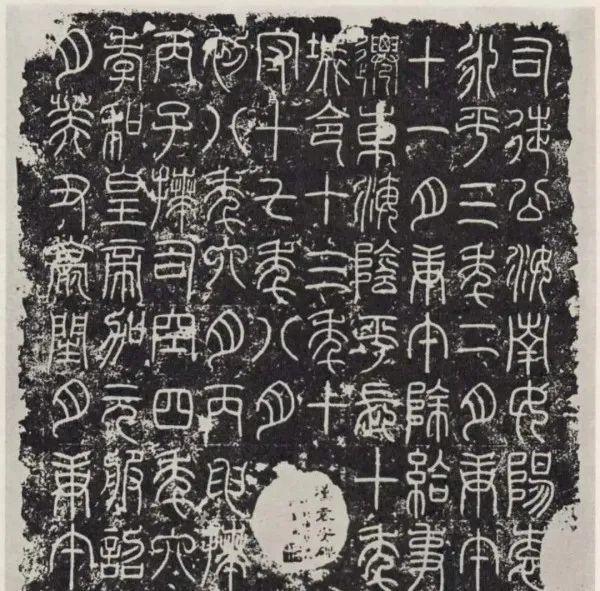 司徒公汝南女陽袁
永平三年二月庚午
十一月庚午除給事
遷東海陰平長十年
城令十三年十
守十七年八月
初八年六月丙申拜
丙子拜司空四年六
孝和皇帝加元服詔
月癸丑薨閏月庚午
漢袁安碑